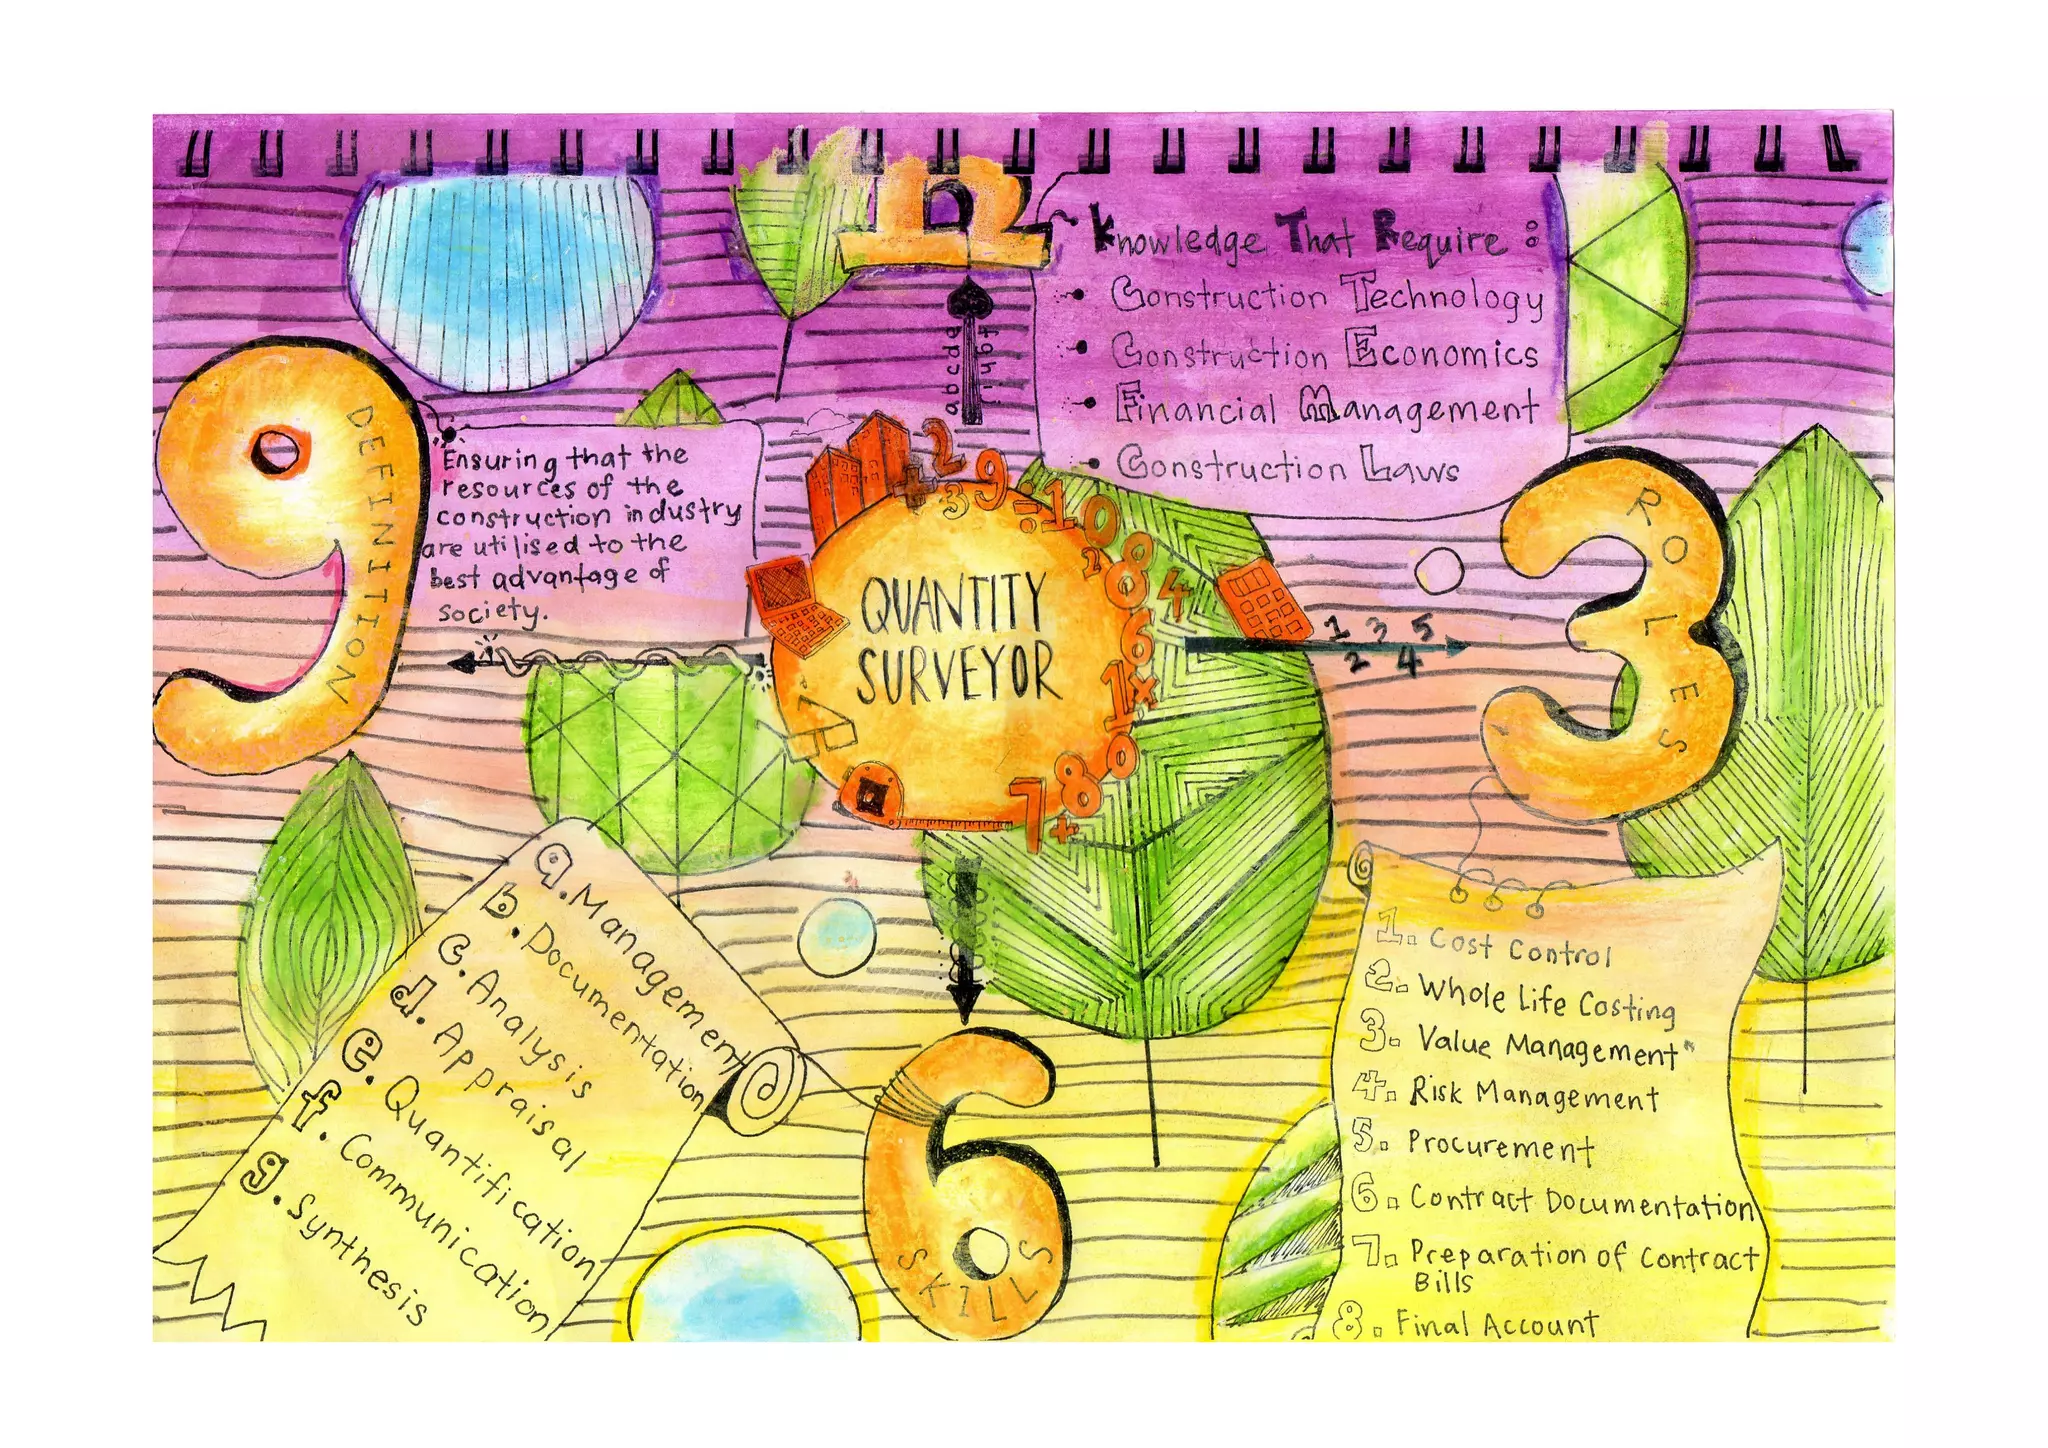 12
Knowledge That Require :
Construction Technology
Construction Economics
Financial Management
Construction Laws
a b c d e
f g h i j
9
DEFINITION
Ensuring that the
resources of the
construction industry
are utilised to the
best advantage of
society.
+ 2 3 9 ÷ 1 0
2 8 8 4
6
1 x
1 0
8
7 +
QUANTITY
SURVEYOR
1 3 5
2 4
3
ROLES
1. Cost Control
2. Whole Life Costing
3. Value Management
4. Risk Management
5. Procurement
6. Contract Documentation
7. Preparation of Contract
Bills
8. Final Account
a. Management
b. Documentation
c. Analysis
d. Appraisal
e. Quantification
f. Communication
g. Synthesis
6
SKILLS